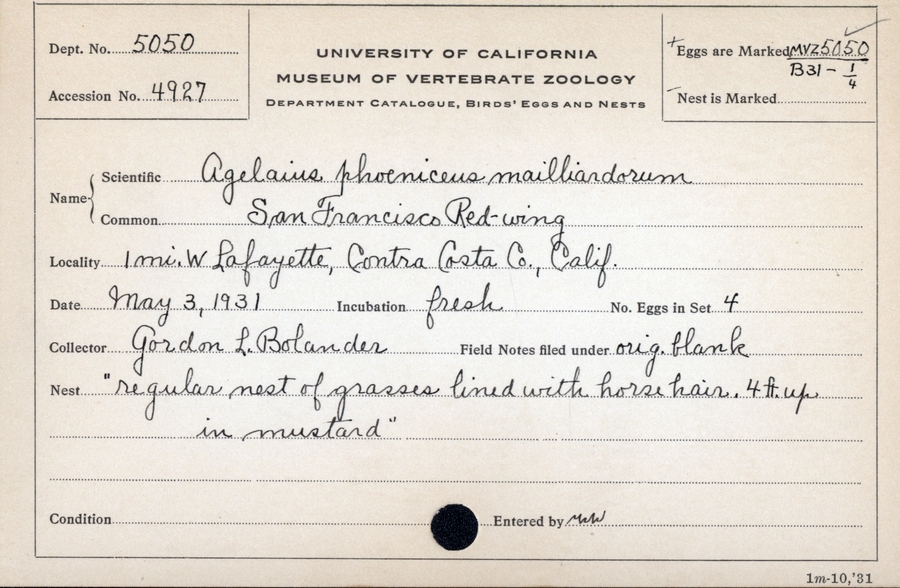 Dept. No. 5050
Accession No. 4927
UNIVERSITY OF CALIFORNIA
MUSEUM OF VERTEBRATE ZOOLOGY
DEPARTMENT CATALOGUE, BIRDS' EGGS AND NESTS
+ Eggs are Marked MVZ5050
B31 - 1/4
- Nest is Marked
Name
Scientific Agelaius phoeniceus mailliardorum
Common San Francisco Red-wing
Locality 1 mi. W Lafayette, Contra Costa Co., Calif.
Date May 3, 1931 Incubation fresh No. Eggs in Set 4
Collector Gordon L. Bolander Field Notes filed under orig. blank
Nest "regular nest of grasses lined with horse hair. 4 ft. up
in mustard"
Condition Entered by
1m-10,'31